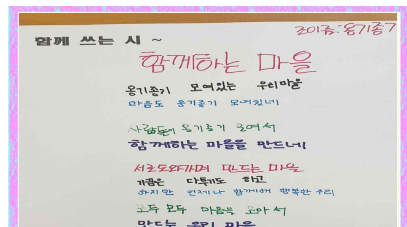 함께 쓰는 시 ~
조이름: 옹기종기
함께하는 마을
옹기종기 모여있는 우리마을
마음도 옹기종기 모여있네
옹기종기 모여서
함께하는 마을을 만드네
서로도와가며 만드는 마을
가끔은 다투기도 하고
하지만 언제나 함께해 행복한 우리
모두 모두 마음을 모아서
만드는 우리 마을